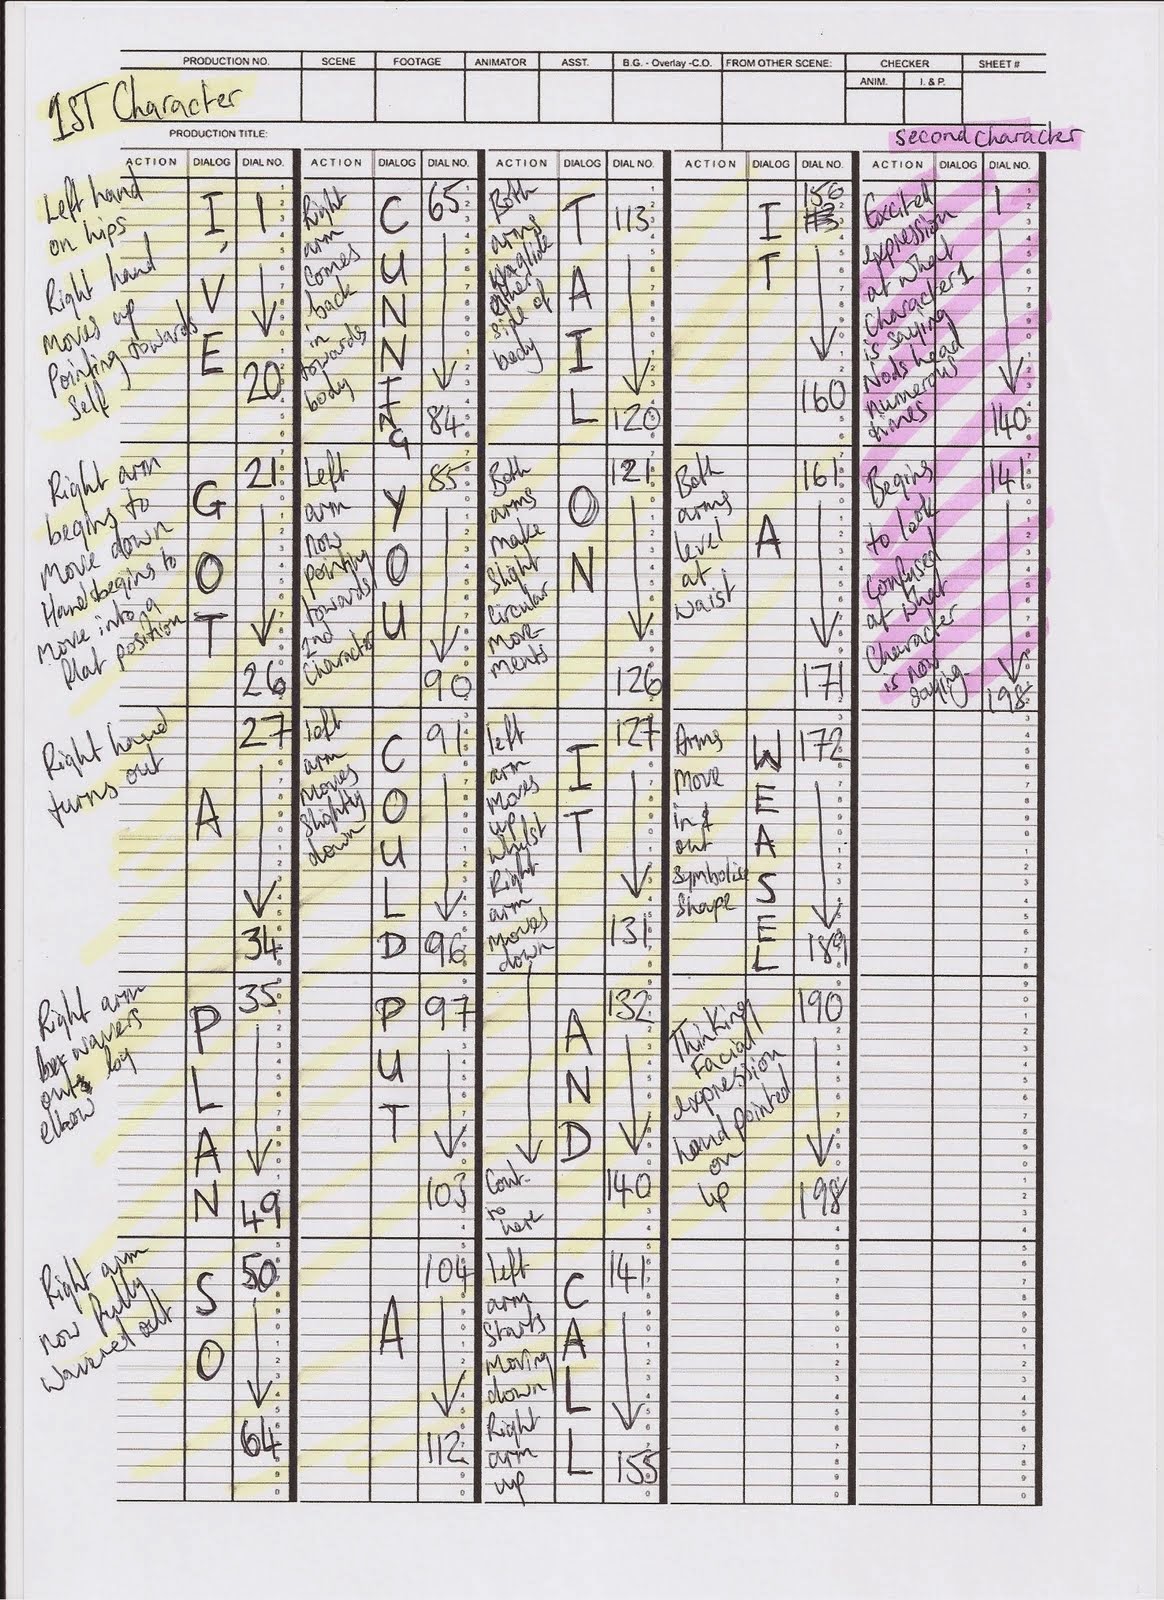 PRODUCTION NO. SCENE FOOTAGE ANIMATOR ASST. B.G. - Overlay -C.O. FROM OTHER SCENE: CHECKER SHEET #
ANIM. I. & P.
1ST Character
PRODUCTION TITLE:
second character
ACTION DIALOG DIAL NO. ACTION DIALOG DIAL NO. ACTION DIALOG DIAL NO. ACTION DIALOG DIAL NO. ACTION DIALOG DIAL NO.
Left hand
on hips
Right hand
moves up
Pointing towards
Self
I'VE
1
20
Right arm
begins to
move down
Hand begins to
move into a
flat position
GOT
21
26
Right hand
turns out
A
27
34
Right arm
wavers
out by
elbow
PLAN
35
49
Right arm
now fully
wavered out
SO
50
64
Right
arm
comes
back
in
towards
body
CUNNING
65
84
Left
arm
now
pointing
towards
2nd
Character
YOU
85
90
left
arm
moves
slightly
down
COULD
91
96
PUT
97
103
A
104
112
Both
arms
either
side of
body
TAIL
113
120
Both
arms
make
slight
circular
move-
ments
ON
121
126
left
arm
moves
up
whilst
Right
arm
moves
down
IT
127
131
Cont.
to
here
AND
132
140
left
arm
starts
moving
down
Right
arm
up
CALL
141
155
IT
156
160
Both
arms
level
at
waist
A
161
171
Arms
move
in &
out
symbolise
shape
WEASEL
172
189
Thinking
Facial
expression
hand pointed
on
lip
190
198
Excited
expression
at what
Character 1
is saying
Nods head
numerous
times
1
140
Begins
to look
confused
at what
Character
is now
saying.
141
198